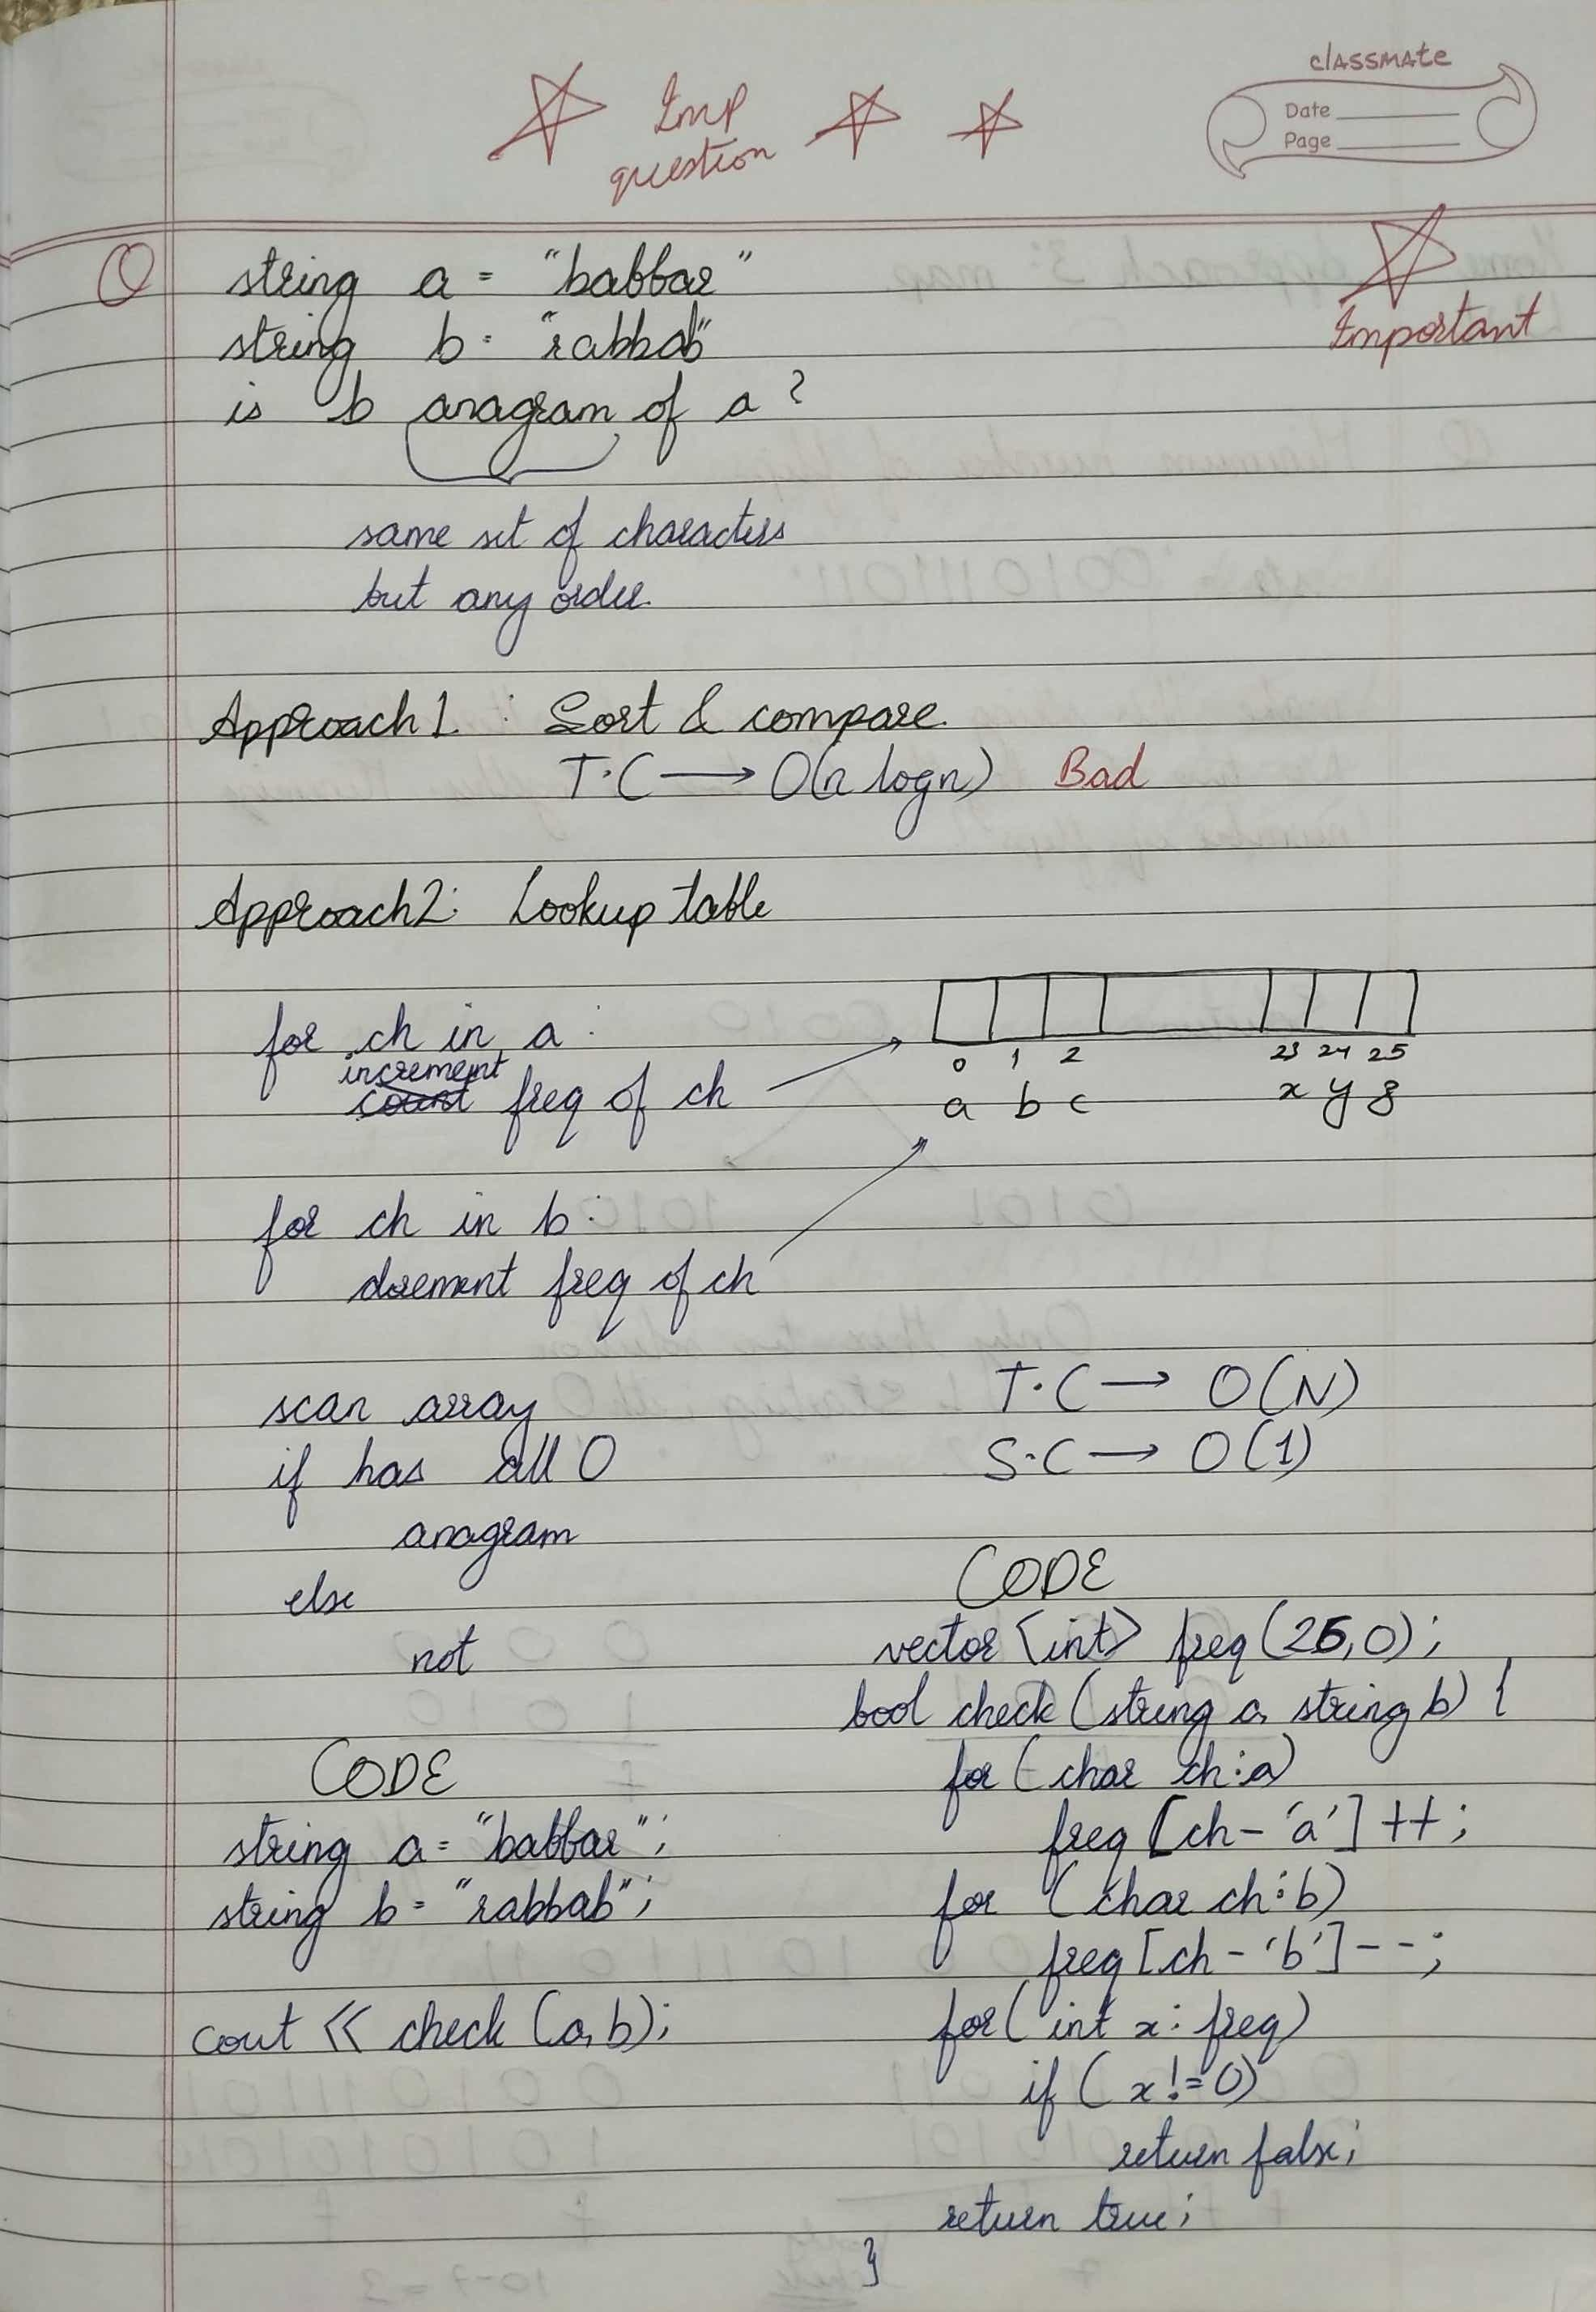 classmate
Date
Page
Imp
question
Important
Q string a = "babbar"
string b = "rabbab"
is b anagram of a ?
same set of characters
but any order.
Approach 1 : Sort & compare.
T.C → O(n logn) Bad
Approach 2: Lookup table
for ch in a :
increment
count freq of ch
0 1 2 23 24 25
a b c x y z
for ch in b:
drement freq of ch
scan array
if has all 0
anagram
else
not
T.C → O(N)
S.C → O(1)
CODE
string a = "babbar";
string b = "rabbab";
cout << check (a, b);
CODE
vector <int> freq (26,0);
bool check (string a, string b) {
for (char ch : a)
freq [ch - 'a'] ++;
for (char ch : b)
freq [ch - 'b'] --;
for (int x : freq)
if (x != 0)
return false;
return true;
}